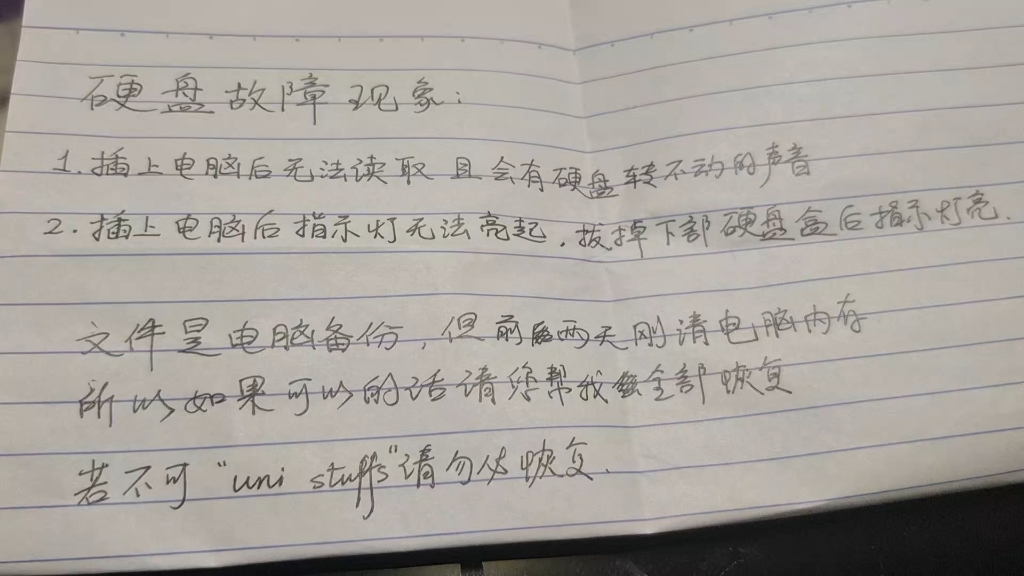 硬盘故障现象：
1.插上电脑后无法读取 且会有硬盘转不动的声音
2.插上电脑后指示灯无法亮起，拔掉下部硬盘盒后指示灯亮.
文件是电脑备份，但前两天刚清电脑内存
所以如果可以的话请您帮我全部恢复
若不可“uni stuffs”请勿必恢复.